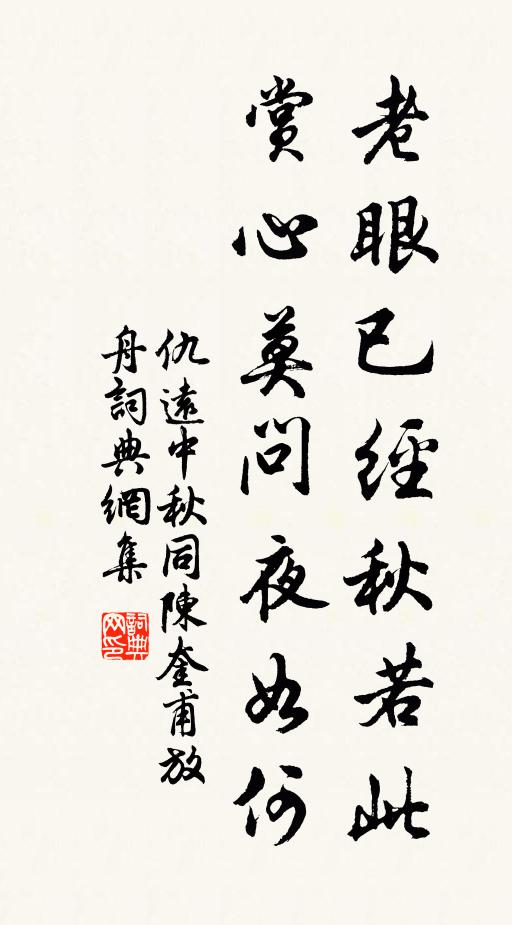 老眼已經秋若此
賞心莫問夜如何
仇遠中秋同陳奎甫放
舟詞典網集
詞典
网印